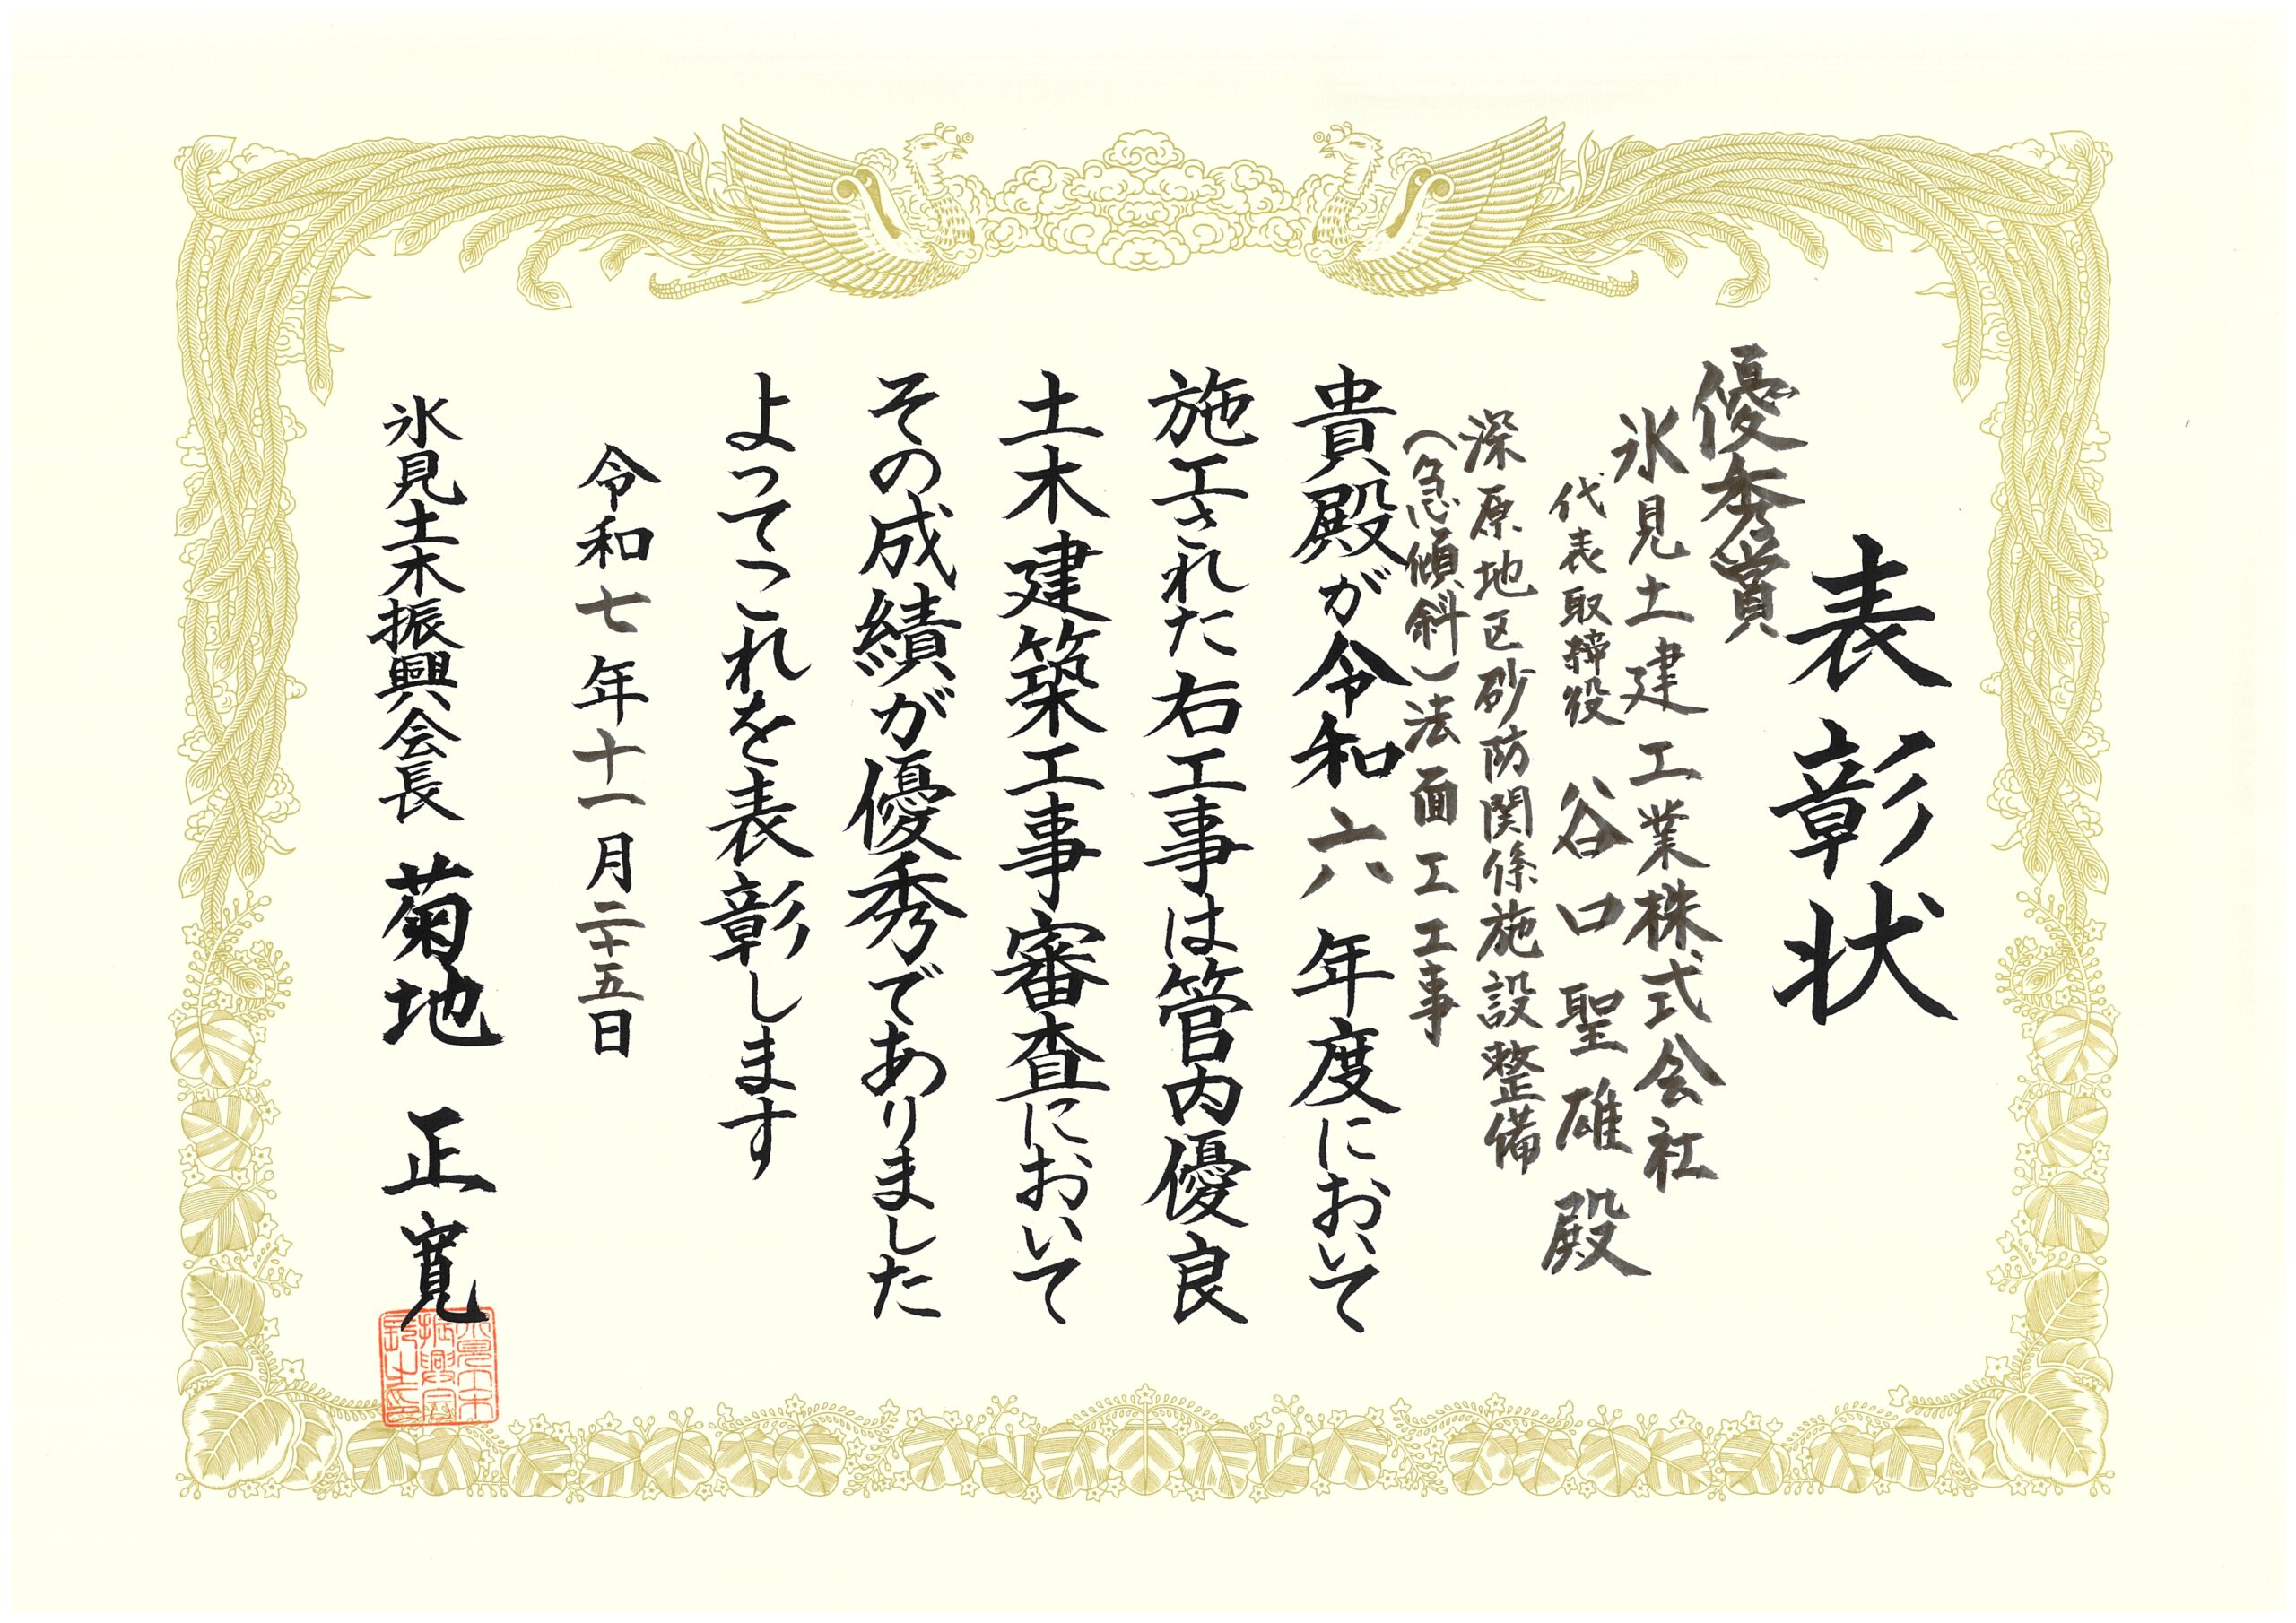 表彰状
優秀賞
氷見土建工業株式会社
代表取締役 谷口聖雄 殿
深原地区砂防関係施設整備
(急傾斜)法面工工事
貴殿が令和六年度において
施工された右工事は管内優良
土木建築工事審査において
その成績が優秀でありました
よってこれを表彰します
令和七年十一月二十五日
氷見土木振興会長 菊地 正寛